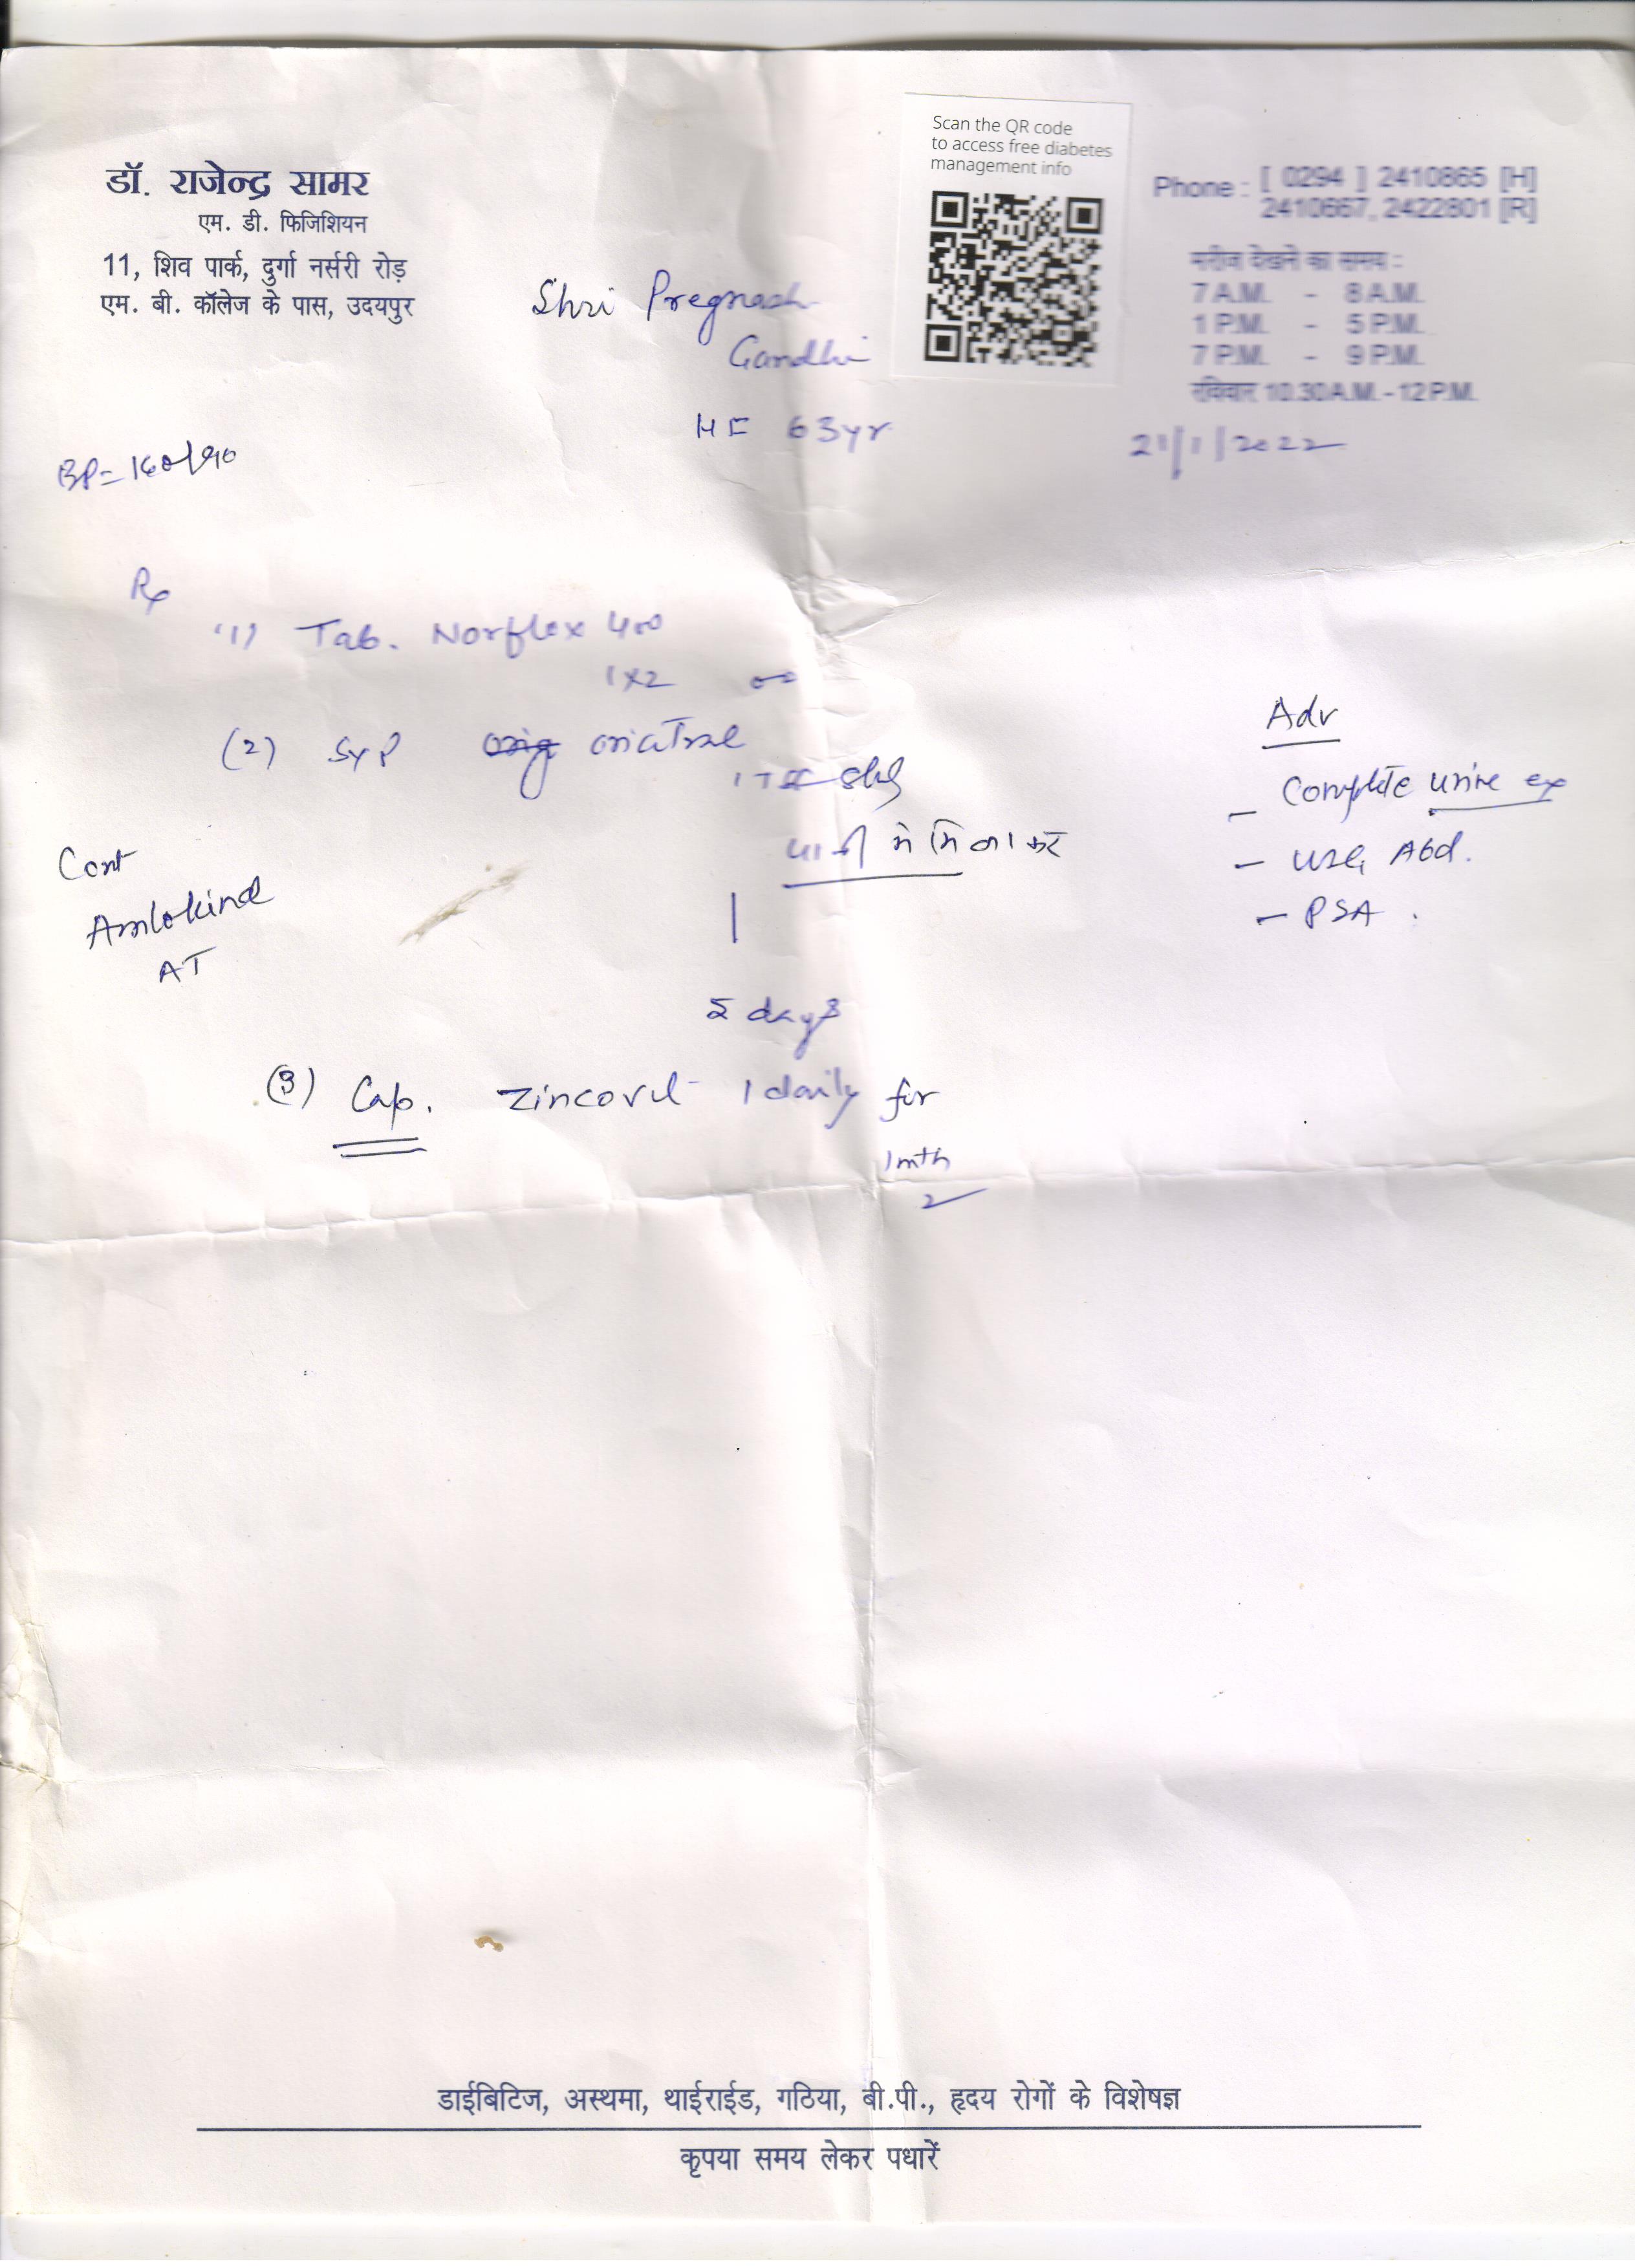 डॉ. राजेन्द्र सामर
एम. डी. फिजिशियन
11, शिव पार्क, दुर्गा नर्सरी रोड़
एम. बी. कॉलेज के पास, उदयपुर
Scan the QR code
to access free diabetes
management info
Phone : [ 0294 ] 2410865 [H]
2410667, 2422801 [R]
मरीज देखने का समय :
7 A.M. - 8 A.M.
1 P.M. - 5 P.M.
7 P.M. - 9 P.M.
रविवार 10.30 A.M. - 12 P.M.
Shri Pregnash
Gandhi
63yr
21/1/2022
BP= 160/90
Rx
(1) Tab. Norflox 400
1x2
(2) Syp
पानी में मिलाकर
5 days
(3) Cap. Zincovit 1 daily for
1mth
Cont
Amlokind
AT
Adv
- Complete urine ex
- USG Abd.
- PSA
डाईबिटिज, अस्थमा, थाईराईड, गठिया, बी.पी., हृदय रोगों के विशेषज्ञ
कृपया समय लेकर पधारें